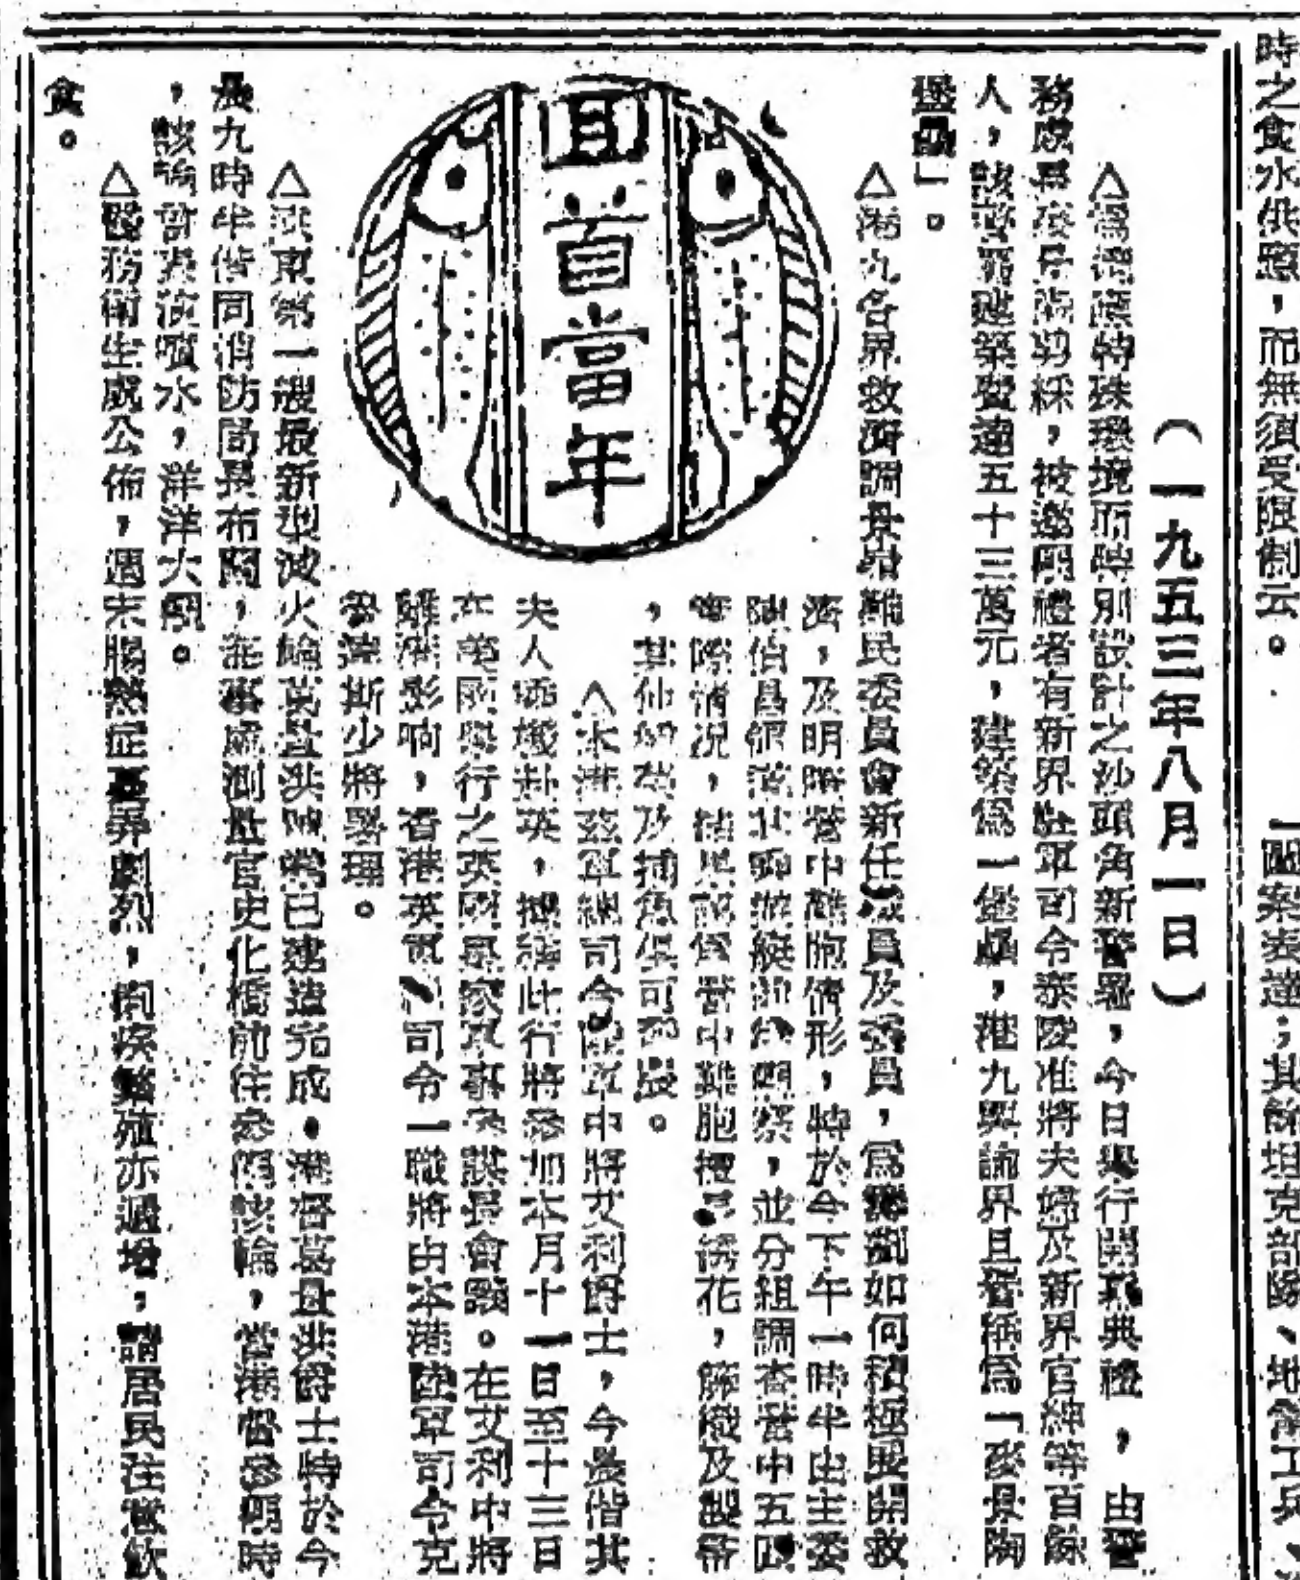 時之食水供應，而無須受限制云。
「圖案表達；其餘坦克部隊、地解工兵、
（一九五三年八月一日）
△為適應特殊環境而特別設計之沙頭角新警署，今日舉行開幕典禮，由警
務處長麥景陶剪綵，被邀觀禮者有新界駐軍司令泰陵准將夫婦及新界官紳等百餘
人，該警署建築費達五十三萬元，建築為一堡壘，港九輿論界且譽稱為「麥景陶
堡壘」。
△港九各界救濟調景嶺難民委員會新任職員及委員，為籌劃如何積極展開救
濟，及明瞭營中難胞情形，特於今下午一時半由主委
陳伯昌 視察，並分組調查營中五區
實際情況，結果 營中難胞擅長綉花，籐織及製帘
，其他 及捕魚俱可發展。
△本港茲軍總司令陸軍中將艾利爵士，今晨偕其
夫人 赴英，據稱此行將參加本月十一日至十三日
在英國舉行之英國皇家軍事參謀長會議。在艾利中將
離港影响，香港英軍 司令一職將由本港陸軍司令克
魯滌斯少將署理。
回首當年
△遠東第一艘最新型滅火輪葛量洪號業已建造完成。港督葛量洪爵士特於今
晨九時半偕同消防局長布闊，海事處測量官史化橋前往參觀該輪，當港督參觀時
，該輪曾表演噴水，洋洋大觀。
△醫務衛生處公佈，週末腸熱症 劇烈，痢疾繁殖亦遞增，請居民注意飲
食。